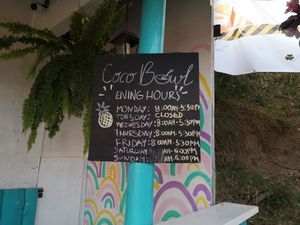 Coco Bowl
ENING HOURS
MONDAY: 8:00AM-5:30PM
TUESDAY: CLOSED
WEDNESDAY 8:00AM-5:30PM
THURSDAY: 8:00AM-5:30PM
FRIDAY: 8:00AM-5:30PM
SATURDAY AM-5:00PM
SUNDAY: AM-5:00PM